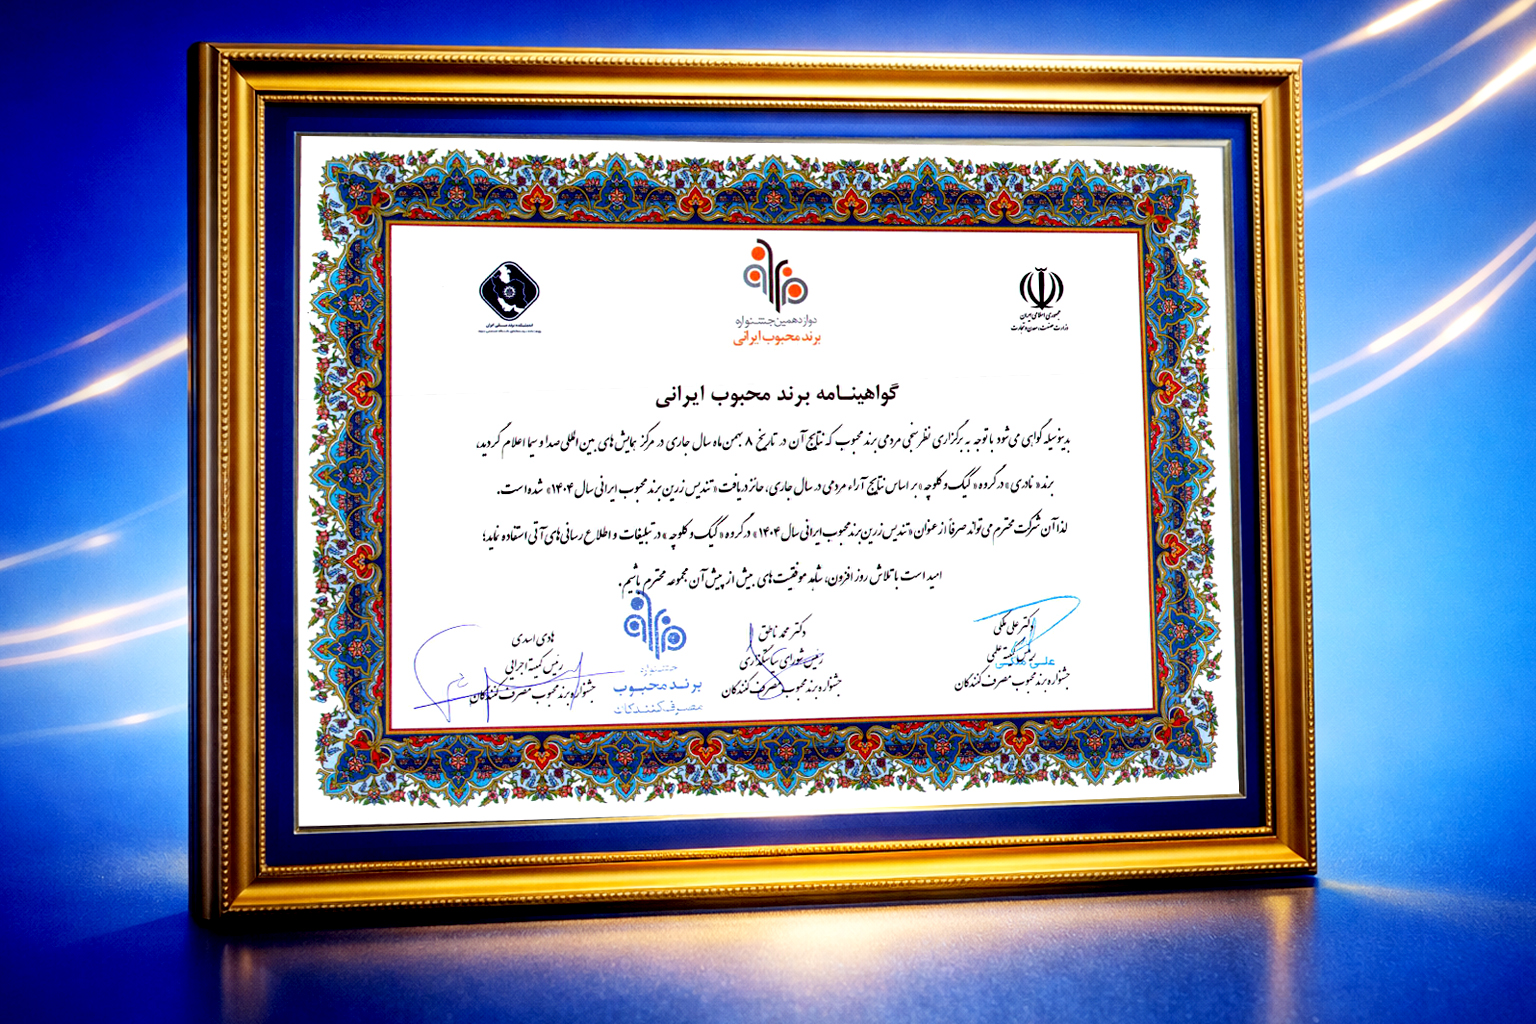 جمهوری اسلامی ایران
وزارت صنعت، معدن و تجارت
دوازدهمین جشنواره
برند محبوب ایرانی
گواهینامه برند محبوب ایرانی
بدینوسیله گواهی می‌شود با توجه به برگزاری نظرسنجی مردمی برند محبوب که نتایج آن در تاریخ ۸ بهمن ماه سال جاری در مرکز همایش‌های بین‌المللی صدا و سیما اعلام گردید،
برند «نادری» در گروه «کیک و کلوچه» بر اساس نتایج آراء مردمی در سال جاری، حائز دریافت «تندیس زرین برند محبوب ایرانی سال ۱۴۰۴» شده است.
لذا آن شرکت محترم می‌تواند صرفاً از عنوان «تندیس زرین برند محبوب ایرانی سال ۱۴۰۴» در گروه «کیک و کلوچه» در تبلیغات و اطلاع رسانی‌های آتی استفاده نماید؛
امید است با تلاش روز افزون، شاهد موفقیت‌های بیش از پیش آن مجموعه محترم باشیم.
دکتر علی ملکی
رئیس کمیته علمی
جشنواره برند محبوب مصرف کنندگان
علی ملکی
دکتر محمد ناطق
رئیس شورای سیاستگذاری
جشنواره برند محبوب مصرف کنندگان
جشنواره
برند محبوب
مصرف‌کنندگان
هادی اسدی
رئیس کمیته اجرایی
جشنواره برند محبوب مصرف کنندگان